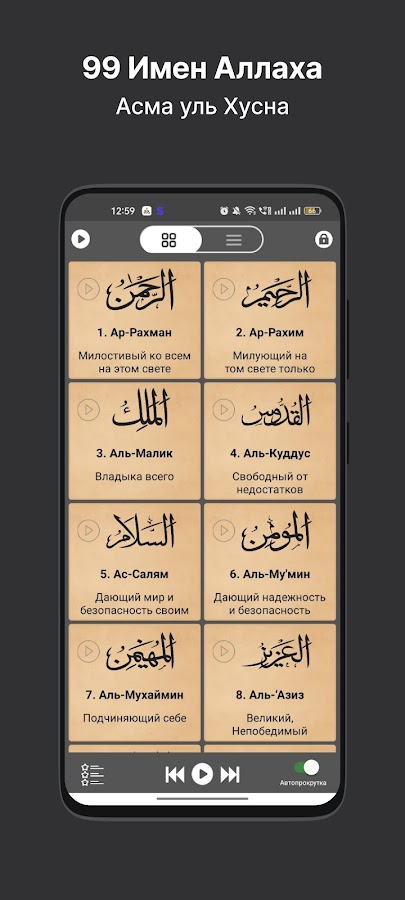 99 Имен Аллаха
Асма уль Хусна
12:59
66
الرحمن
1. Ар-Рахман
Милостивый ко всем
на этом свете
الرحيم
2. Ар-Рахим
Милующий на
том свете только
الملك
3. Аль-Малик
Владыка всего
القدوس
4. Аль-Куддус
Свободный от
недостатков
السلام
5. Ас-Салям
Дающий мир и
безопасность своим
المؤمن
6. Аль-Му'мин
Дающий надежность
и безопасность
المهيمن
7. Аль-Мухаймин
Подчиняющий себе
العزيز
8. Аль-‘Азиз
Великий,
Непобедимый
Автопрокрутка